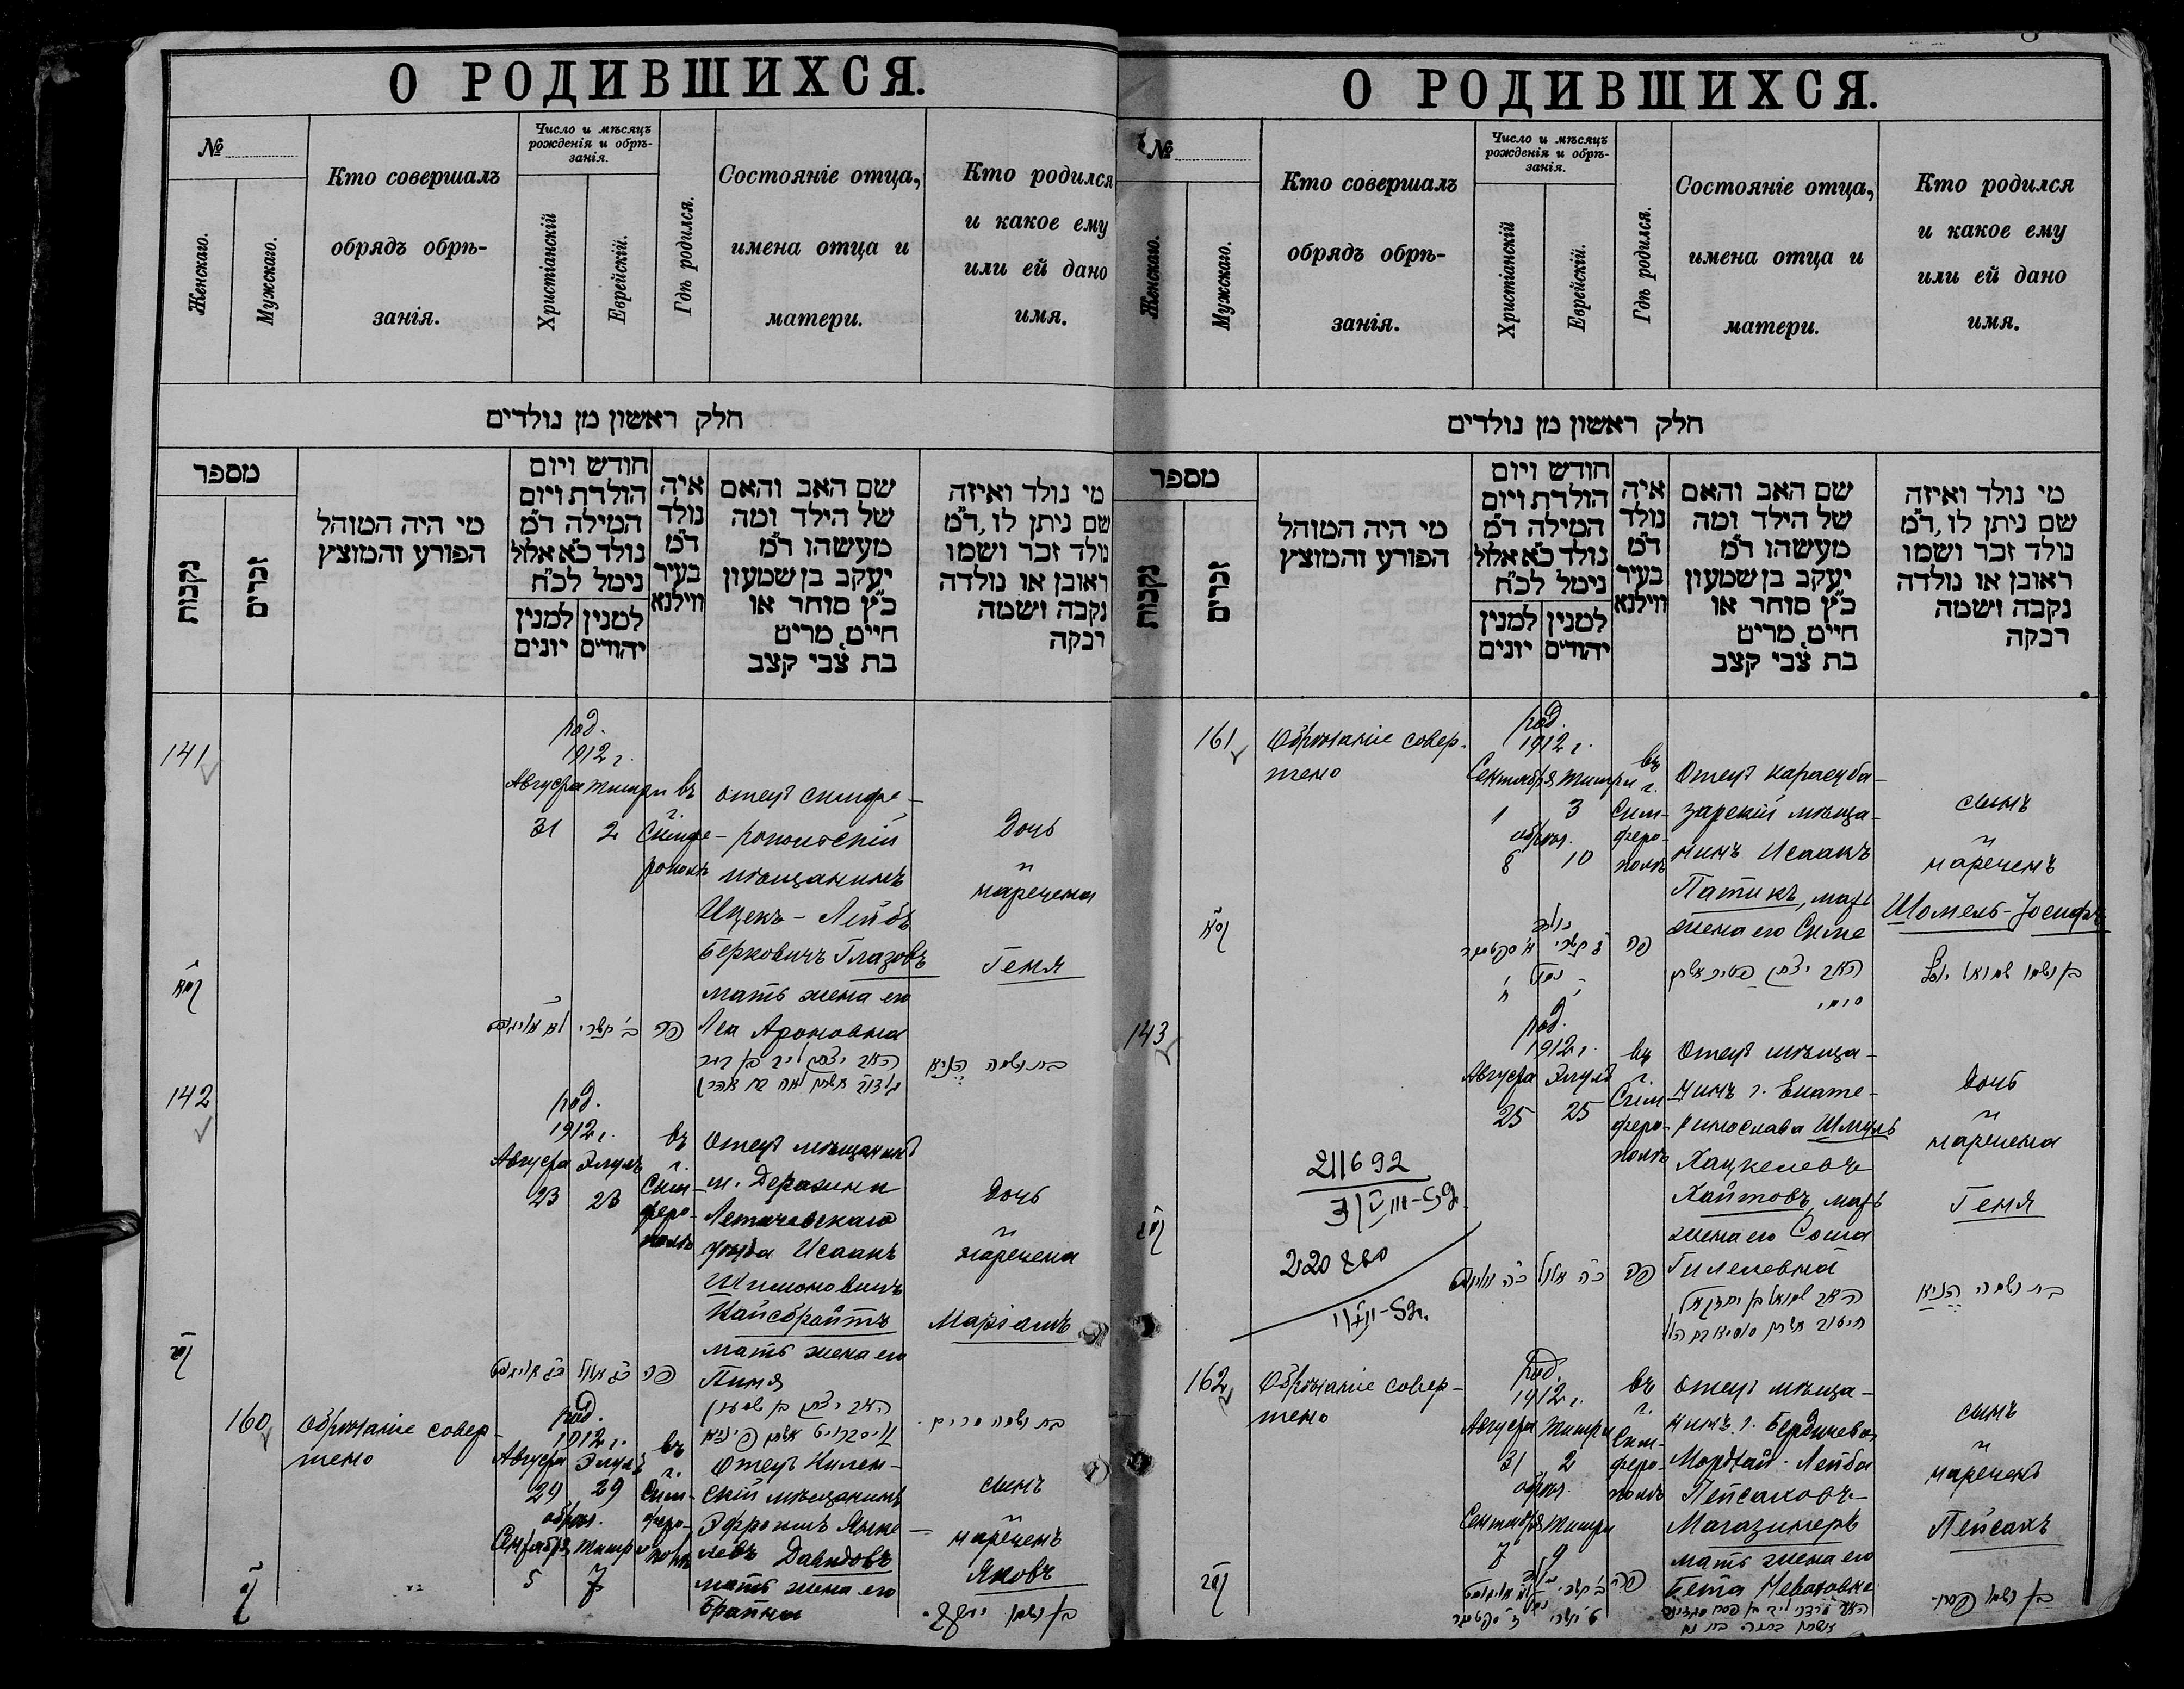 О РОДИВШИХСЯ.
№
Женскаго.
Мужскаго.
Кто совершалъ
обрядъ обрѣ-
занія.
Число и мѣсяцъ
рожденія и обрѣ-
занія.
Христіанскій
Еврейскій.
Гдѣ родился.
Состояніе отца,
имена отца и
матери.
Кто родился
и какое ему
или ей дано
имя.
חלק ראשון מן נולדים
מספר
נקבות
זכרים
מי היה המוהל
הפורע והמוצץ
חודש ויום
הולדת ויום
המילה ד״מ
נולד כ״א אלול
נימל לכ״ח
למנין
יונים
למנין
יהודים
איה
נולד
ד״מ
בעיר
ווילנא
שם האב והאם
של הילד ומה
מעשהו ד״מ
יעקב בן שמעון
כ״ץ סוחר או
חיים, מרים
בת צבי קצב
מי נולד ואיזה
שם ניתן לו, ד״מ
נולד זכר ושמו
ראובן או נולדה
נקבה ושמה
רבקה
141
род.
1912 г.
Августа Тишри
31 2
въ
г.
Симфе-
рополѣ
отецъ симфе-
ропольскій
мѣщанинъ
Ицекъ-Лейбъ
Берковичъ Глазовъ
мать жена его
Леа Ароновна
Дочь
наречена
Геня
ב׳ תשרי
פה
בת ושמה העניא
142
род.
1912 г.
Августа Элулъ
23 23
въ
г.
Сим-
феро-
полѣ
отецъ мѣщанинъ
м. Деражни
Летичевскаго
уѣзда Исаакъ
Шимоновичъ
Вайсбройтъ
мать жена его
Пиня
дочь
наречена
Маріамъ
פה
בת ושמה מרים
160
Обрѣзаніе совер-
шено
род.
1912 г.
Августа Элулъ
29 29
обрѣз.
Сентября Тишри
5 7
въ
г.
Сим-
феро-
полѣ
Отецъ Килен-
скій мѣщанинъ
Эфроимъ Янке-
левъ Давидовъ
мать жена его
Брайна
сынъ
нареченъ
Яковъ
בן ושמו יעקב
О РОДИВШИХСЯ.
№
Женскаго.
Мужскаго.
Кто совершалъ
обрядъ обрѣ-
занія.
Число и мѣсяцъ
рожденія и обрѣ-
занія.
Христіанскій
Еврейскій.
Гдѣ родился.
Состояніе отца,
имена отца и
матери.
Кто родился
и какое ему
или ей дано
имя.
חלק ראשון מן נולדים
מספר
נקבות
זכרים
מי היה המוהל
הפורע והמוצץ
חודש ויום
הולדת ויום
המילה ד״מ
נולד כ״א אלול
נימל לכ״ח
למנין
יונים
למנין
יהודים
איה
נולד
ד״מ
בעיר
ווילנא
שם האב והאם
של הילד ומה
מעשהו ד״מ
יעקב בן שמעון
כ״ץ סוחר או
חיים, מרים
בת צבי קצב
מי נולד ואיזה
שם ניתן לו, ד״מ
נולד זכר ושמו
ראובן או נולדה
נקבה ושמה
רבקה
161
Обрѣзаніе совер-
шено
род.
1912 г.
Сентября Тишри
1 3
обрѣз.
8 10
въ
г.
Сим-
феро-
полѣ
Отецъ карасуба-
зарскій мѣща-
нинъ Исаакъ
Патикъ, мать
жена его Симе
сынъ
нареченъ
Шомель-Іосифъ
פה
143
род.
1912 г.
Августа Элулъ
25 25
въ
г.
Сим-
феро-
полѣ
Отецъ мѣща-
нинъ г. Екате-
ринослава Шмуль
Хацкелевъ
Хайтовъ, мать
жена его Сося
Гилелевна
дочь
наречена
Геня
כ״ה אלול
פה
בת ושמה העניא
211692
220880
162
Обрѣзаніе совер-
шено
род.
1912 г.
Августа Тишри
31 2
обрѣз.
Сентября Тишри
7 9
въ
г.
Сим-
феро-
полѣ
отецъ мѣща-
нинъ г. Бердичева
Мордхай-Лейба
Пейсаховъ
Магазинеръ
мать жена его
Бейла
сынъ
нареченъ
Пейсахъ
פה
בן ושמו פסח